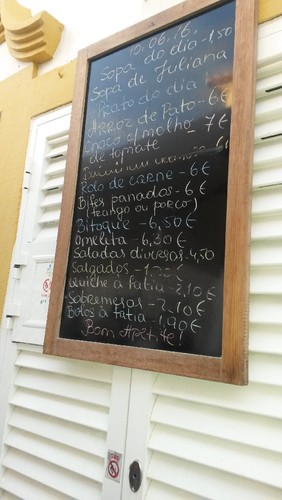 10.06.16.
Sopa do dia - 1,50
Sopa de Juliana
Prato do dia
Arroz de Pato - 6€
Choco c/ molho - 7€
de tomate
Rolo de carne - 6€
Bifes panados - 6€
(frango ou porco)
Bitoque - 6,50€
Omelita - 6,30€
Saladas diversas - 4,50
Salgados -
Quiche à Fatia - 2,10€
Sobremesas - 2,10€
Bolos à Fatia - 1,90€
Bom Apetite!